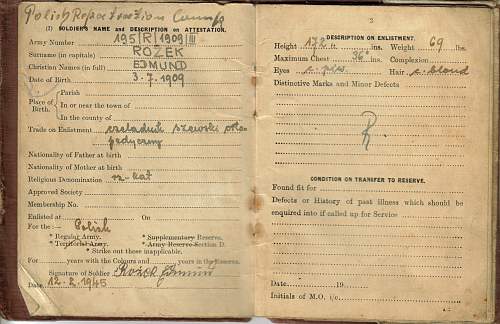 Polish Repatriation Camp
(I) SOLDIER'S NAME and DESCRIPTION on ATTESTATION.
Army Number 195/R/1909/III
Surname (in capitals) ROŻEK
Christian Names (in full) EDMUND
Date of Birth 3.7.1909
Place of Birth.
Parish
In or near the town of
In the county of
Trade on Enlistment czeladnik szewski orto
pedyczny
Nationality of Father at birth
Nationality of Mother at birth
Religious Denomination rz-kat
Approved Society
Membership No.
Enlisted at On
For the :— Polish
* Regular Army. * Supplementary Reserve.
* Territorial Army. * Army Reserve Section D.
* Strike out those inapplicable.
For years with the Colours and years in the Reserve.
Signature of Soldier Rożek Edmund
Date 12.2.1945
2
DESCRIPTION ON ENLISTMENT.
Height 172 ft. ins. Weight 69 lbs.
Maximum Chest 36 ins. Complexion
Eyes c. piw. Hair c. blond
Distinctive Marks and Minor Defects
R
CONDITION ON TRANSFER TO RESERVE.
Found fit for
Defects or History of past illness which should be
enquired into if called up for Service
Date 19
Initials of M.O. i/c.